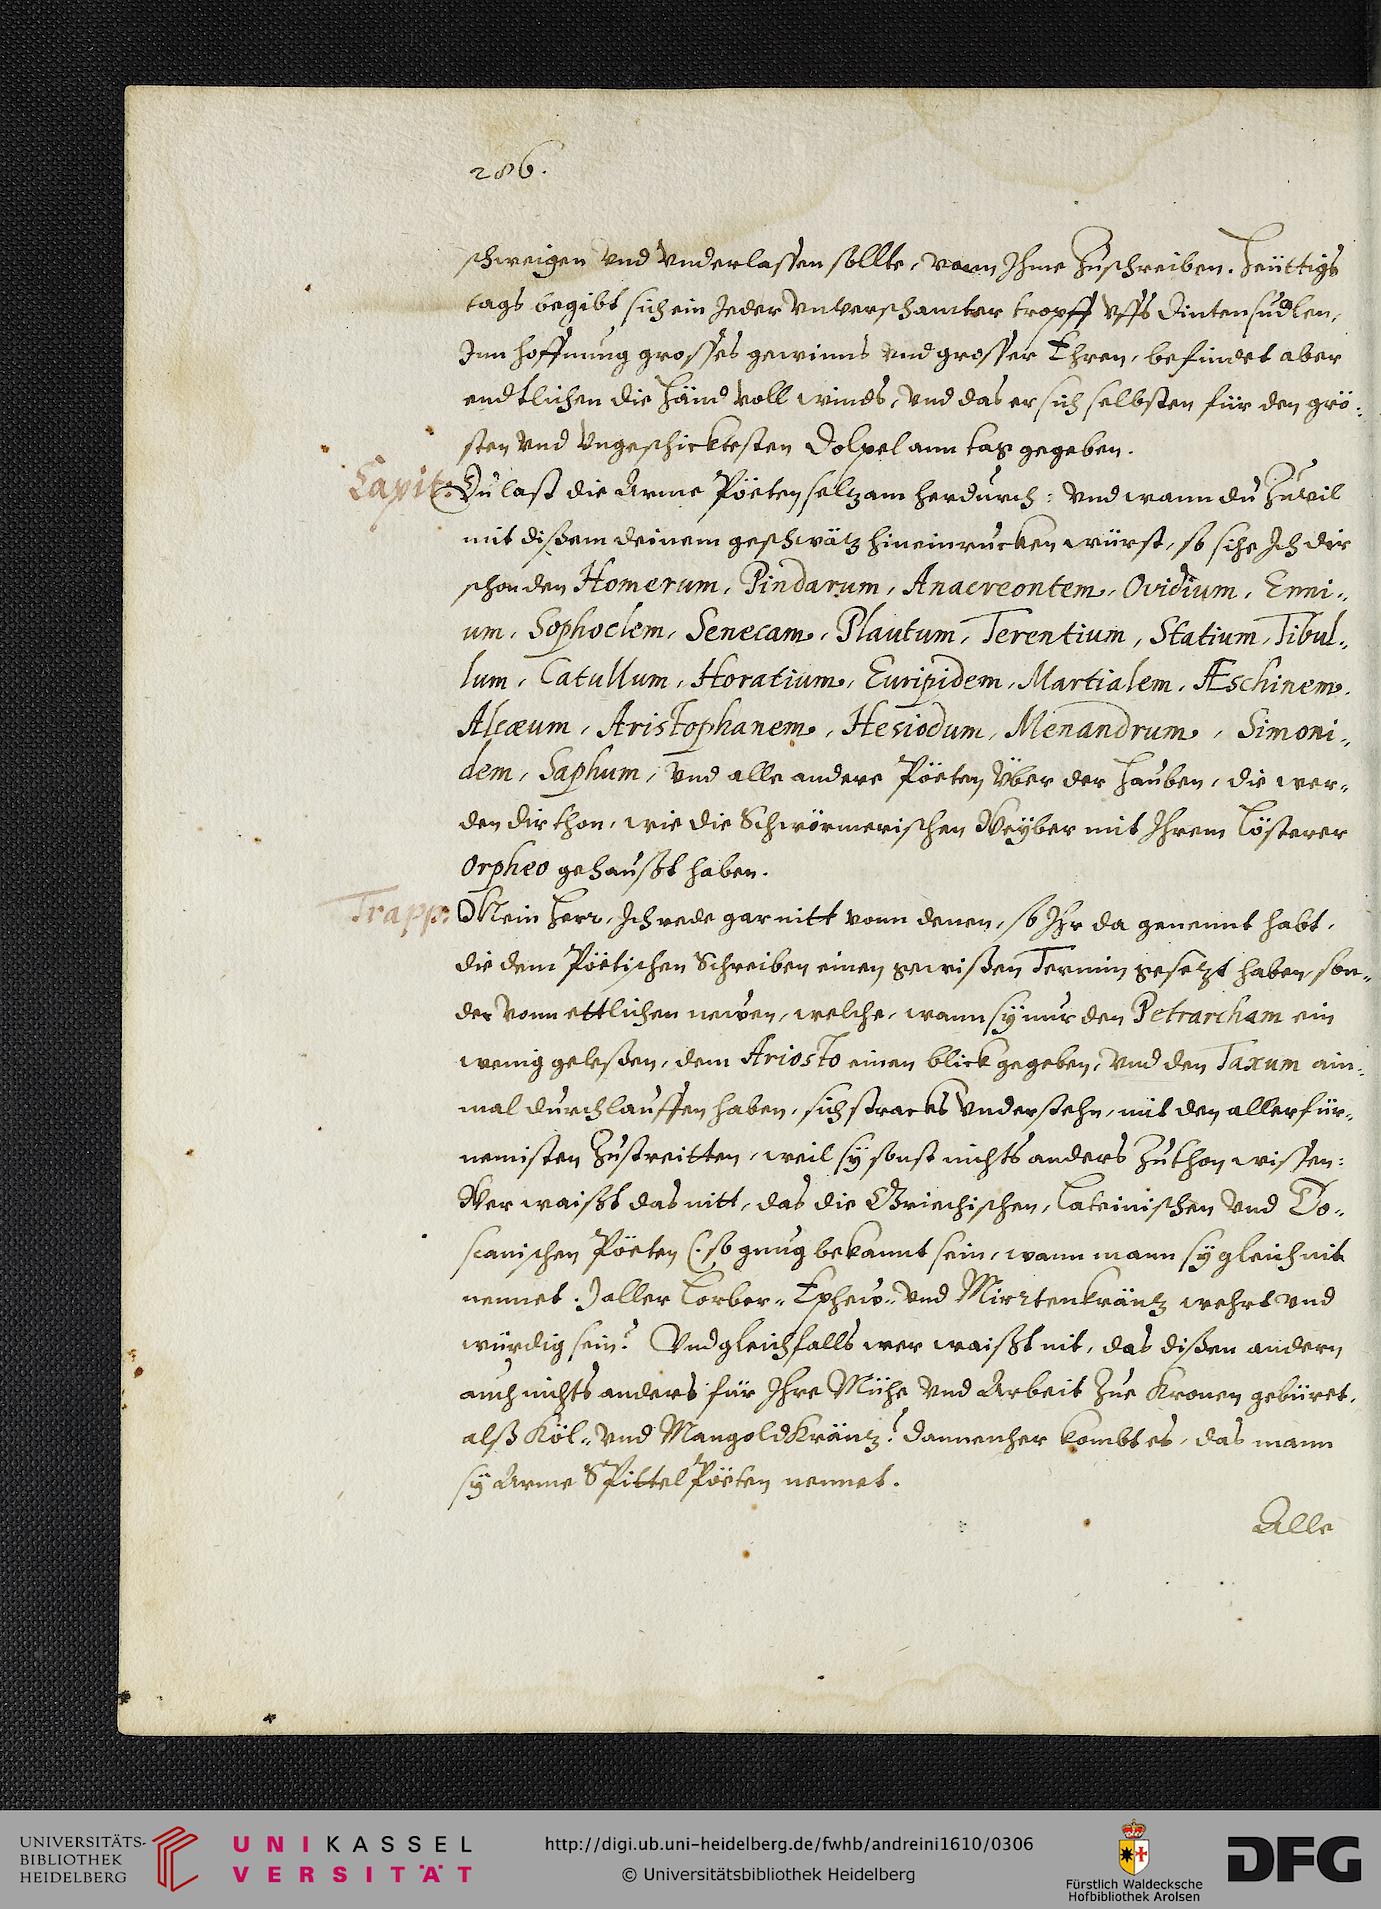 286.
schweigen vnd vnderlassen sollte, vonn Ihme Zuschreiben. Heüttigs
tags begibt sich ein Jeder vnverschamter tropff vffs Dintensudlen,
Inn hoffnung grosses gewinns vnd grosser Ehren, befindet aber
endtlichen die Händ voll winds, vnd das er sich selbsten für den grö-
sten vnd vngeschicktesten Dolpel ann tag gegeben.
Capit: Du last die Arme Pöeten seltzam herdurch: vnd wann du Zuvil
mit dißem deinem geschwätz hineinrucken würst, so sihe Ich dir
schon den Homerum, Pindarum, Anacreontem, Ovidium, Enni-
um, Sophoclem, Senecam, Plautum, Terentium, Statium, Tibul-
lum, Catullum, Horatium, Euripidem, Martialem, Æschinem,
Alcæum, Aristophanem, Hesiodum, Menandrum, Simoni-
dem, Saphum, vnd alle andere Pöeten über der Hauben, die wer-
den dir thon, wie die Schwörmerischen Weÿber mit Ihrem Lösterer
Orpheo gehaußt haben.
Trapp: Mein Herr, Ich rede gar nitt vonn denen, so Ihr da genennt habt,
die dem Pöetischen Schreiben einen gewißen Termin gesetzt haben, son-
der vonn ettlichen newen, welche, wann sÿ nur den Petrarcham ein
wenig geleßen, dem Ariosto einen blick gegeben, vnd den Taxum ain-
mal durchlauffen haben, sich stracks vnderstehn, mit den allerfür-
nemisten Zustreitten, weil sÿ sonst nichts anders Zuthon wissen:
Wer waißt das nitt, das die Griechischen, Lateinischen vnd To-
scanischen Pöeten (: so gnug bekannt sein, wann mann sÿ gleich nit
nennet :) aller Lorber- Ephew- vnd Mirrtenkräntz wehrt vnd
würdig sein? Vnd gleichfalls wer waißt nit, das dißen andern
auch nichts anders für Ihre Mühe vnd Arbeit Zue Kronen gebüret,
alß Köl- vnd Mangoldkräntz? dannenher kombt es, das mann
sÿ Arme Spittel Pöeten nennet.
Alle
UNIVERSITÄTS-
BIBLIOTHEK
HEIDELBERG
UNIKASSEL
VERSITÄT
http://digi.ub.uni-heidelberg.de/fwhb/andreini1610/0306
© Universitätsbibliothek Heidelberg
Fürstlich Waldecksche
Hofbibliothek Arolsen
DFG